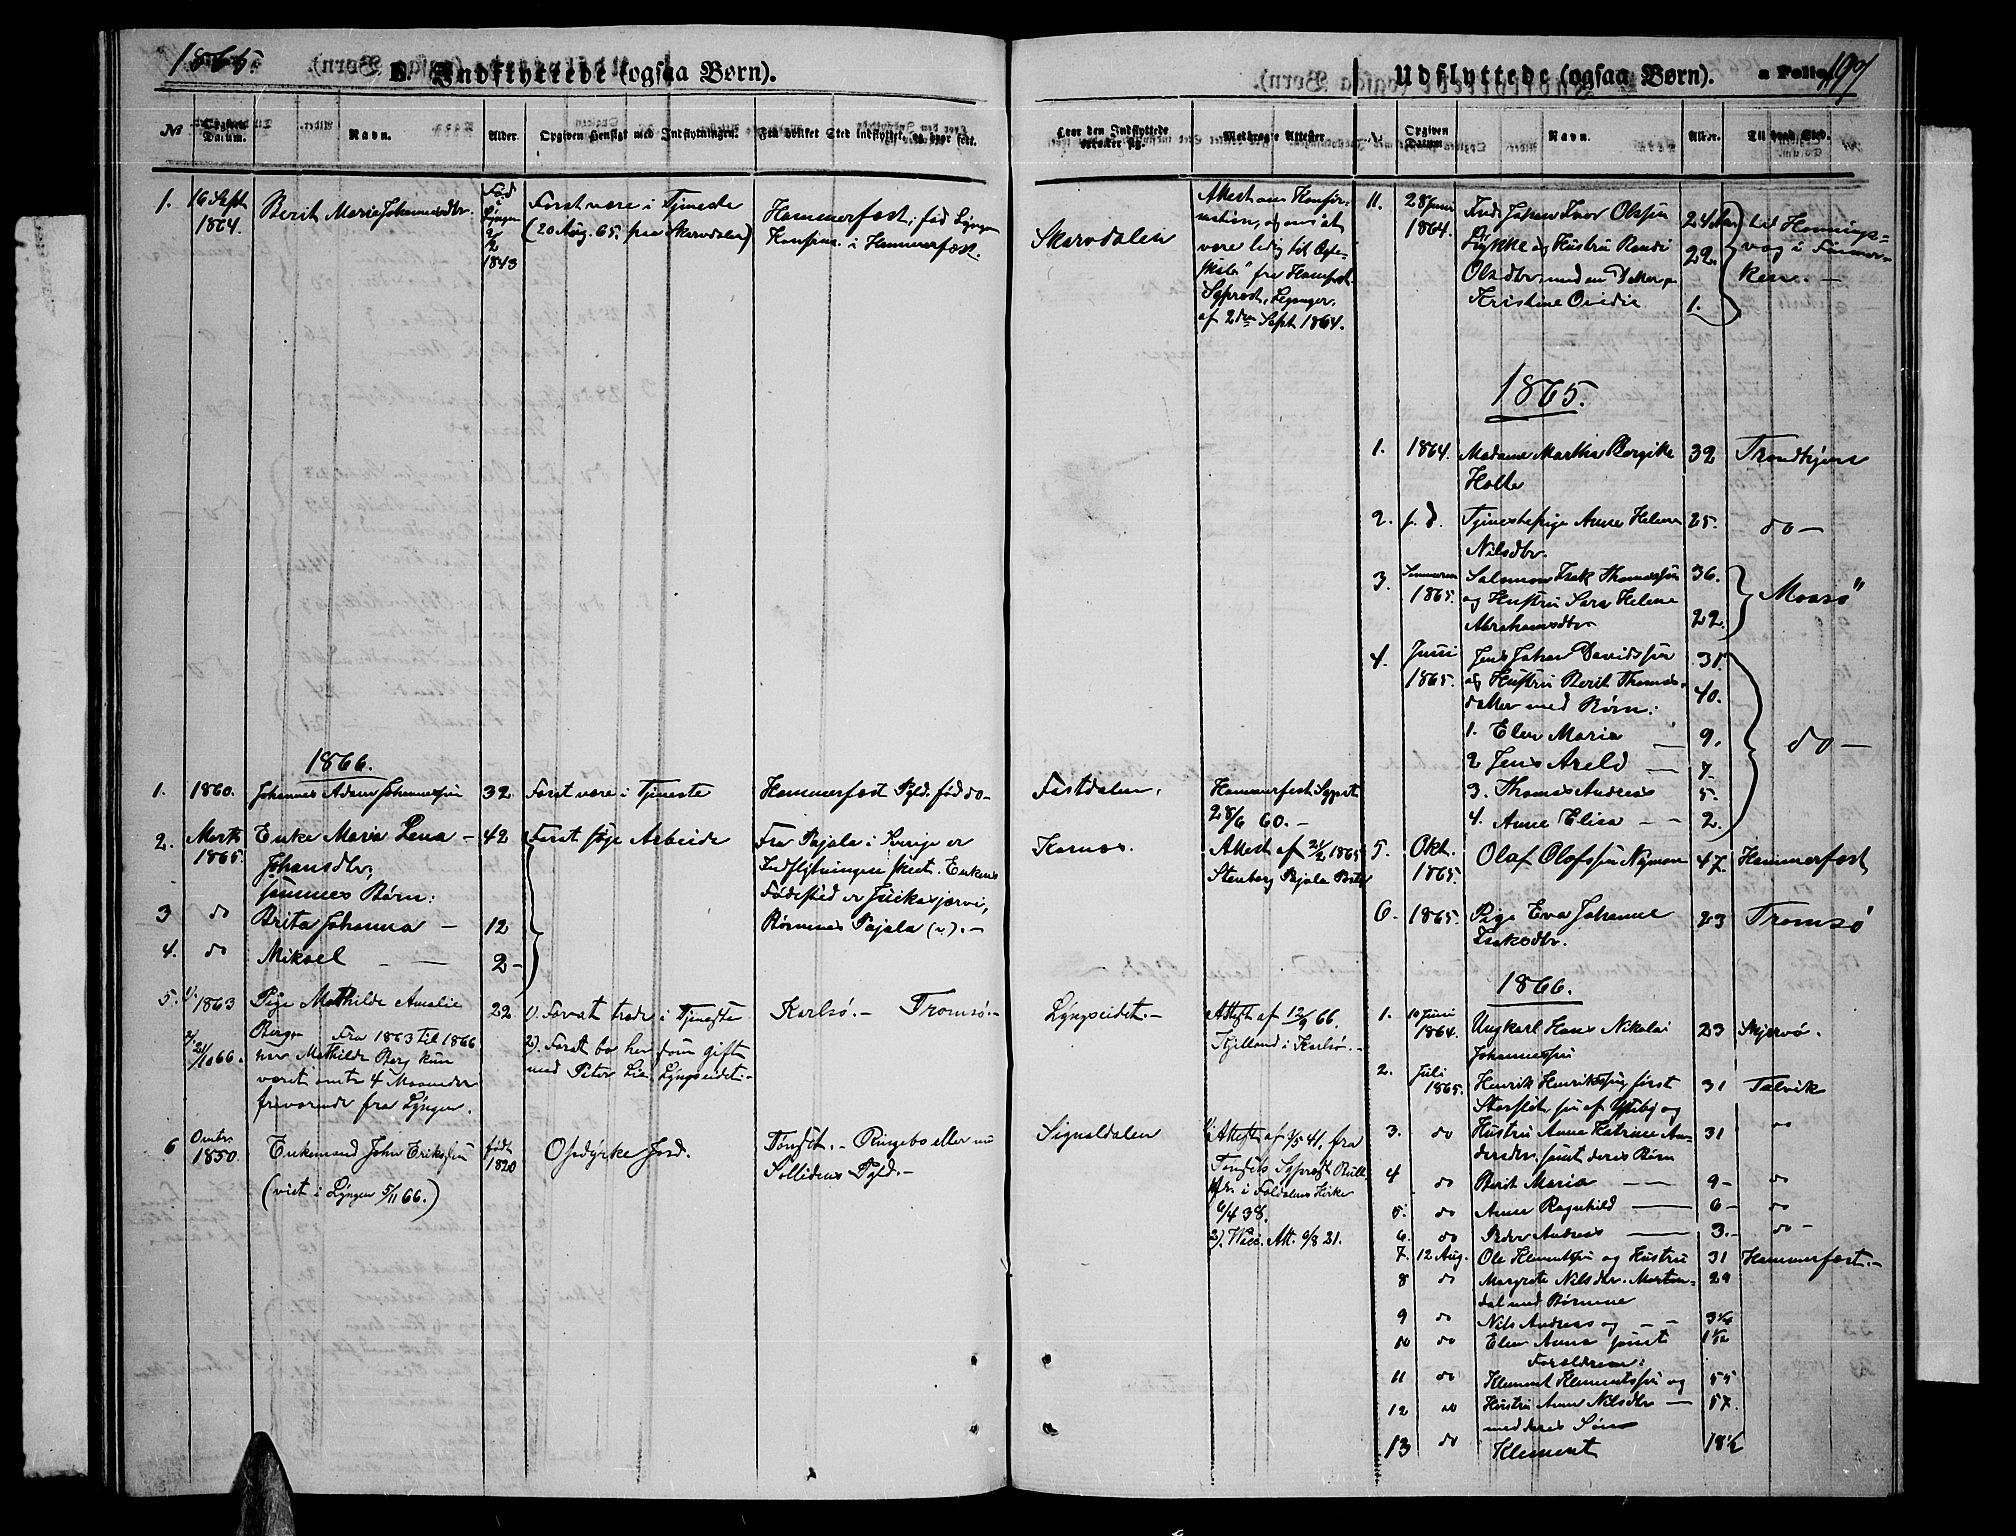 1865.
E. Indflyttede (ogsaa Børn).
№
Opgiven Datum.
Navn.
Alder.
Opgiven Hensigt med Indflytningen.
Fra hvilket Sted indflyttet, og hvor født.
1.
16 Sept
1864.
Berit Maria Johannesdtr.
Fød
i
Lyngen
2/2
1843
Forat være i Tjeneste
(20 Aug. 65. paa Skarvdalen)
Hammerfest; fød Lyngen
Konfirm. i Hammerfest.
1866.
1.
1860.
Johannes Adam Johannessøn
32
Forat være i Tjeneste
Hammerfest Pgld. fød do-
2.
Marts
1865.
Enke Maria Lena -
Johansdtr,
hennes Børn:
42
Forat søge Arbeide
Fra Pajala i Sverige er
Indflytningen skeet. Enkens
Fødested er Juckasjærvi,
Børnenes Pajala (?). -
3
do
Brita Johanna -
12
4.
do
Mikael - -
2 -
5.
1/. 1863
2/. 21/10 66.
Pige Mathilde Amalie
Berge Fra 1863 til 1866
har Mathilde Berg kun
været omtr 4 Maaneder
fraværende fra Lyngen.
22
1). Forat træde i Tjeneste
2). Forat bo her som gift
med Peter Lie, Lyngseidet.
Karlsø. - Tromsø. -
6
Omtr.
1850.
Enkemand John Erikssøn
(viet i Lyngen 5/11 66.)
født
1820
Opdyrke Jord.
Tønset. - Ringebo eller nu
Sollidens Pgld. -
Udflyttede (ogsaa Børn).
Folio 197
Hvor den Indflyttede
Medbragte Attester
№
Opgiven
Datum
Navn.
Alder.
Til hvad Sted.
Skarvdalen
Attest om Konfir-
mation, og om at
være ledig til Ægte-
skab fra Hamfest
Sgprest, Lejunger,
af 2den Sept 1864.
11.
28 Juni
1864.
Inds Johan Ivar Olssøn
Lykke og Hustru Randi
Olsdtr, med en Datter,
Kristine Ovidie
24 Aar
22.
1.
til Honnings-
vog i Finmar-
ken. -
1865.
1.
1864.
Madame Martha Bergite
Holte
32
Trondhjem
2.
s. d.
Tjenestepige Anne Helene
Nilsdtr.
25.
do -
3
Sommeren
1865.
Salmon Isak Thomassøn
og Hustru Sara Helene
Abrahamsdtr
36.
22.
Maasø
4.
Juni
1865.
Jens Johan Davidssøn
og Hustru Berit Thomas-
datter med Børn:
31.
40.
1. Elen Maria
9.
2 Jens Areld -
7.
3. Thomas Andreas
5.
4. Anne Elisa - -
2.
do -
Fastdalen.
Hammerfest Sgprest
28/6 60. -
Karnæs.
Attest af 21/2 1865
Stenborg Pajala
5.
Okt.
1865.
Olaf Olofssøn Nyman
47.
Hammerfest
6.
1865.
Pige Eva Johanne
Isaksdtr.
23
Tromsø
1866.
Lyngseidet. -
Attest af 12/9 66.
Kjelland i Karlsø. -
1.
10 Juni
1864.
Ungkarl Hans Nikolai
Johannessøn
23
Skjervø.
2.
Juli
1865.
Henrik Henrikssøn først
31
Talvik
3.
do
Hustru Anne Katrine An-
dersdtr. samt deres Børn
31
do
4
do
Berit Maria - -
9 -
do
5.
do
Anne Ragnhild -
6 -
do
6.
do
Peder Andreas -
3. -
do -
Signaldalen
1/. Attest af 9/5 41. fra
Tønsets Sgprest
i Foldalens Kirke
6/4 38.
2). Vacc. Att. 6/8 21.
7.
12 Aug.
Ole Klemetssøn og Hustru
31
Hammerfest. -
8
do
Margrete Nilsdtr. Mortens-
dal med Børnene
29
9
do
Nils Andreas og - -
3 1/4
10
do
Elen Anna samt
Forældrene:
1 1/12
11
do
Klement Klementssøn og
55
12
do
Hustru Anne Nilsdtr -
med deres Søn
57.
13
do
Klement
18 1/2